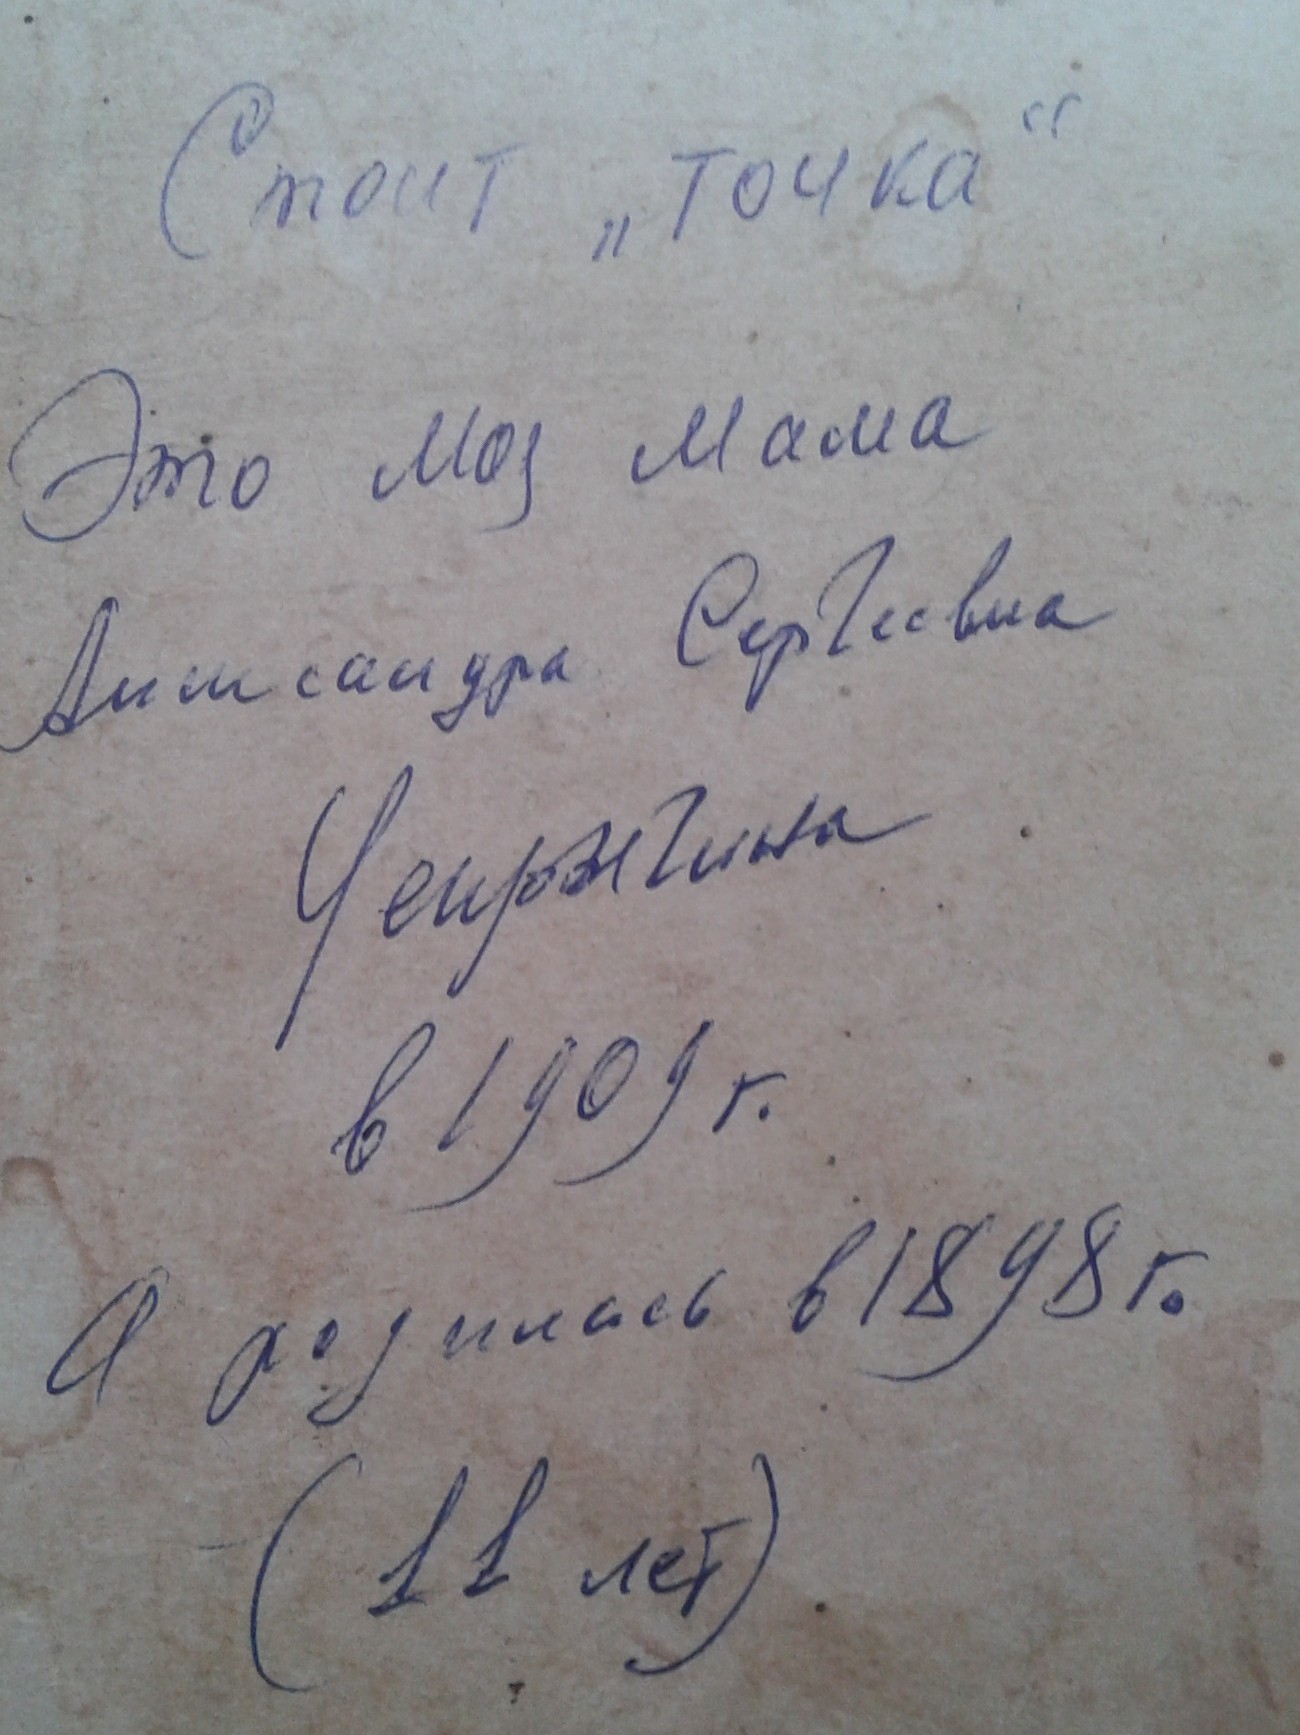 Стоит „точка“
Это моя мама
Александра Сергеевна
в 1909 г.
А родилась в 1898 г.
(11 лет)